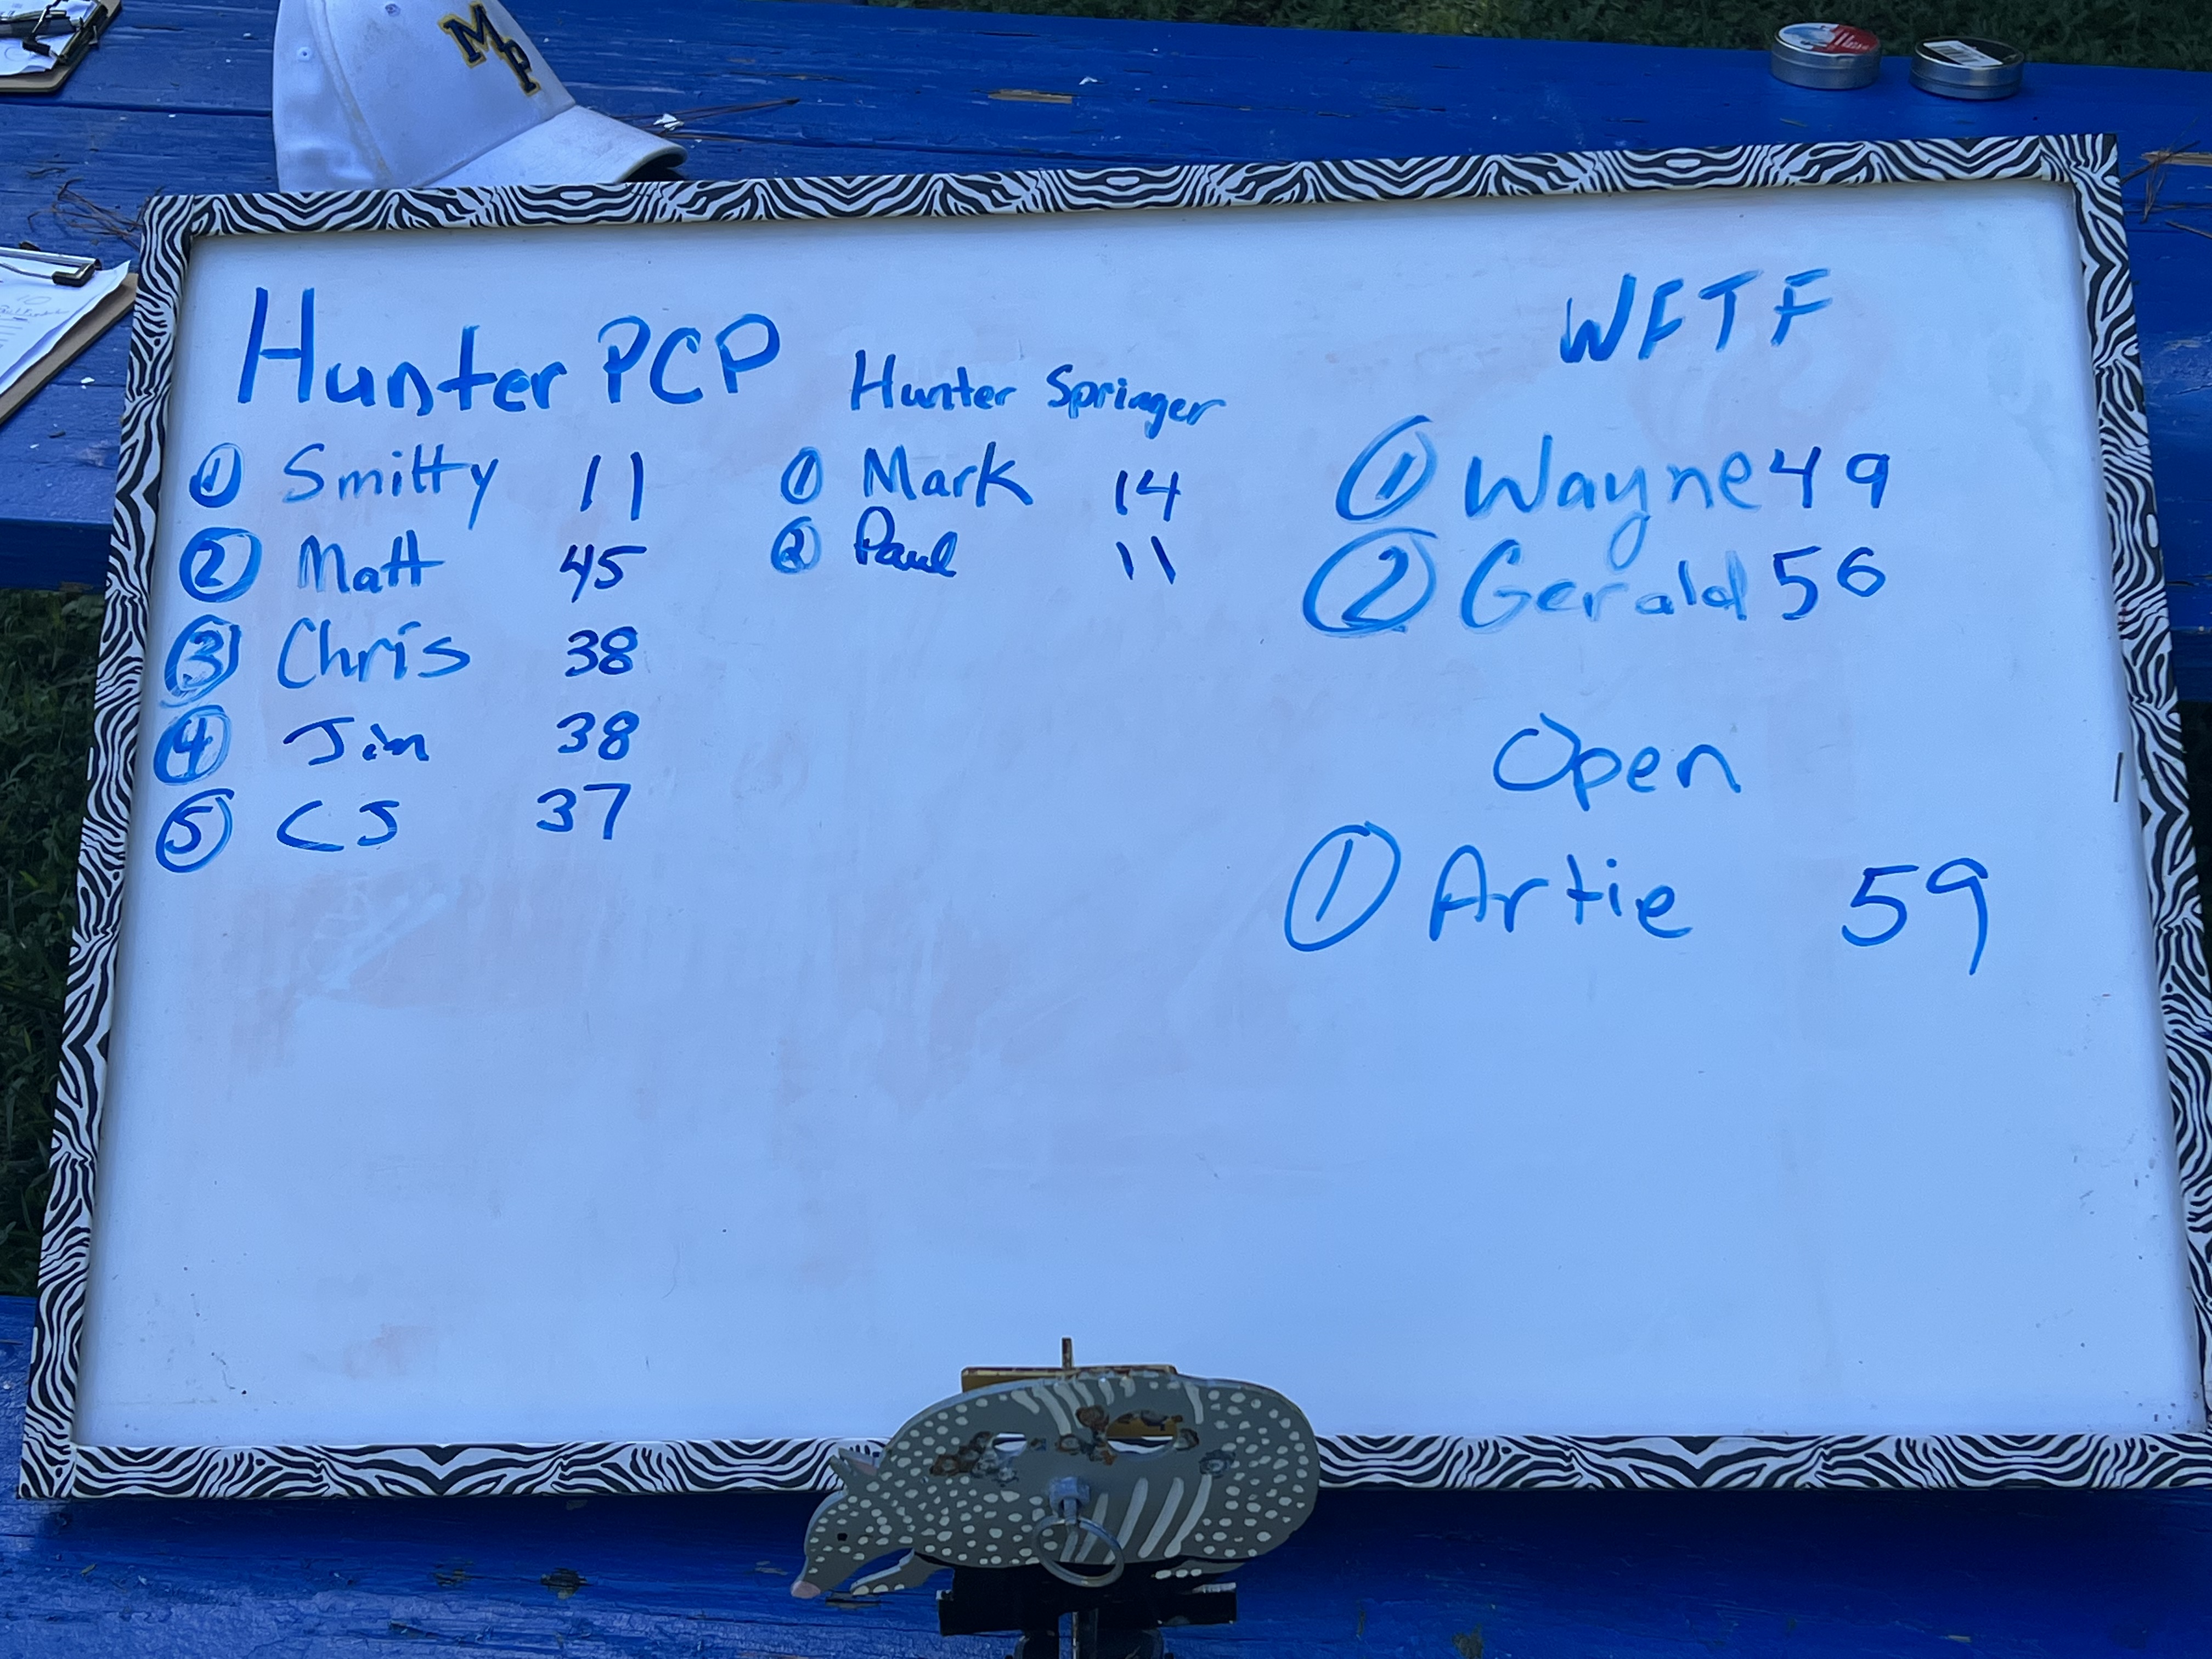 MP
Hunter PCP
① Smitty 11
② Matt 45
③ Chris 38
④ Jim 38
⑤ CJ 37
Hunter Springer
① Mark 14
② Paul 11
WFTF
① Wayne 49
② Gerald 56
Open
① Artie 59